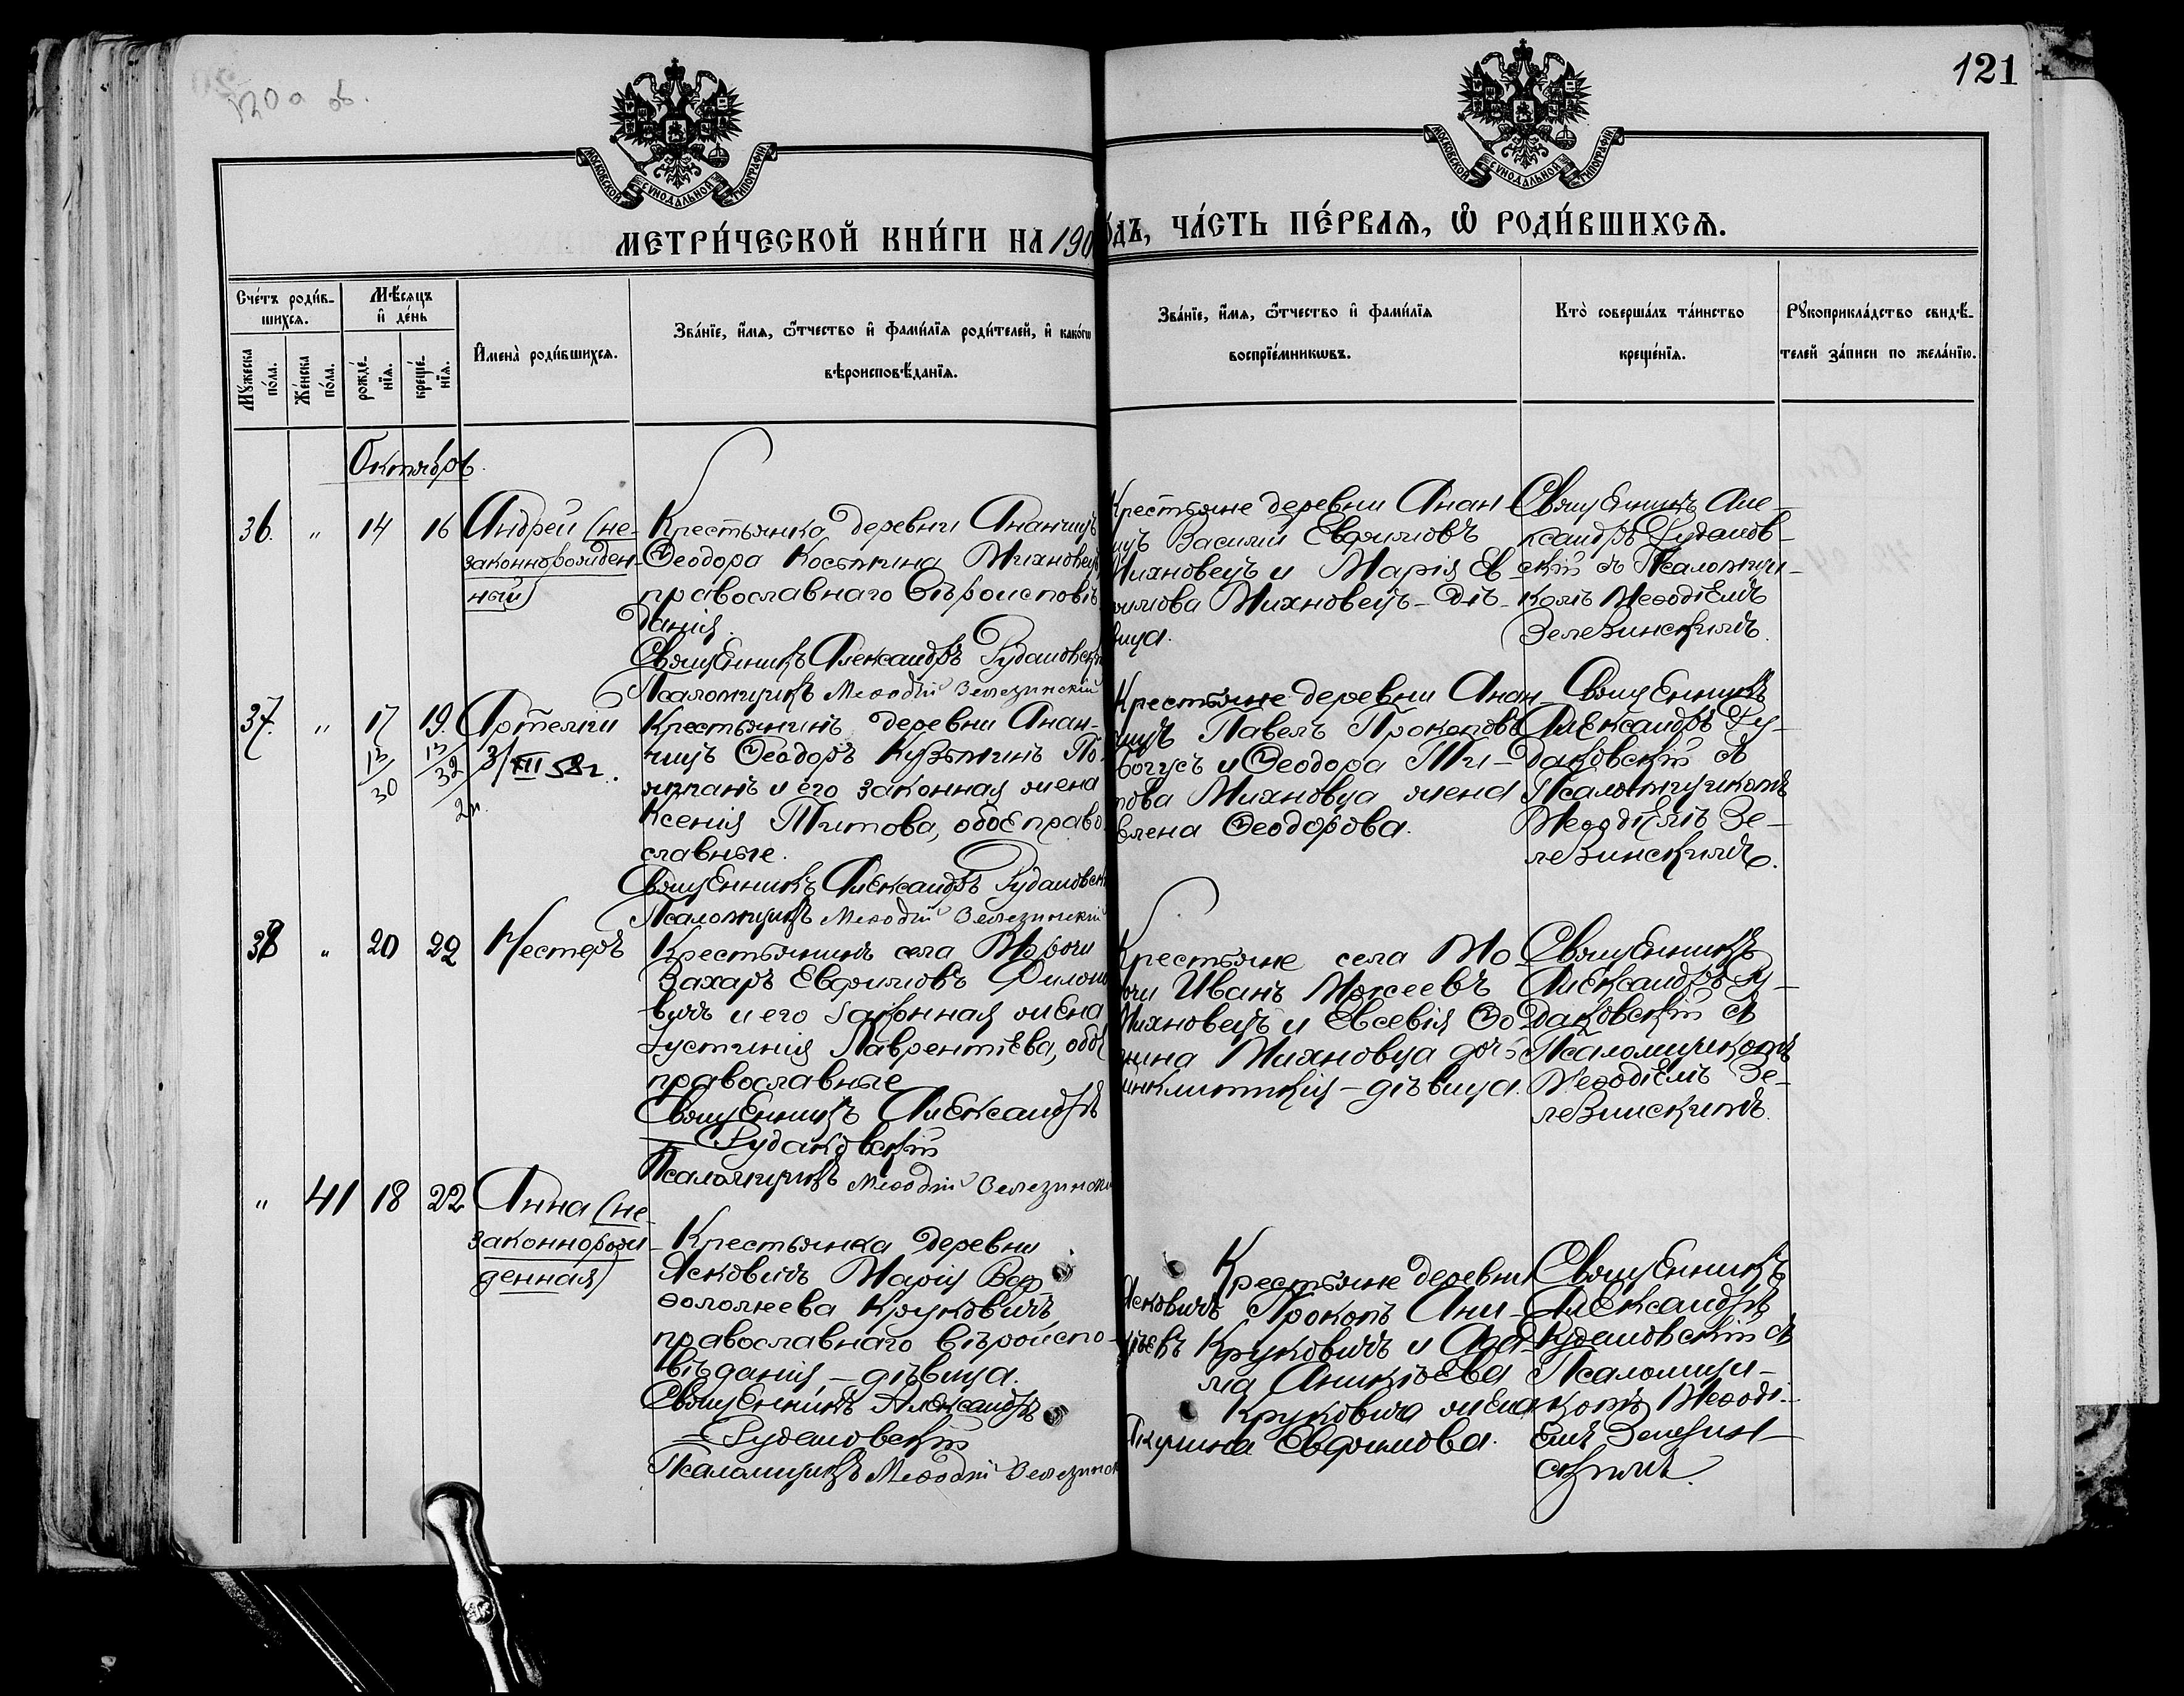 120а об.
121
МОСКОВСКОЙ СѴНОДАЛЬНОЙ ТИПОГРАФІИ
МОСКОВСКОЙ СѴНОДАЛЬНОЙ ТИПОГРАФІИ
МЕТРИ́ЧЕСКОЙ КНИ́ГИ НА 190
о́дъ, ЧА́СТЬ ПЕ́РВАѦ, Ѿ РОДИ́ВШИХСѦ.
Сче́тъ роди́в-
шихсѧ.
Мꙋ́жеска по́ла.
Же́нска по́ла.
Мѣ́сѧцъ
и҆ де́нь
рожде́-
нїѧ.
креще́-
нїѧ.
И҆мена̀ роди́вшихсѧ.
Зва́нїе, и҆́мѧ, ѻ҆́тчество и҆ фами́лїѧ роди́телей, и҆ како́гѡ
вѣроисповѣ́данїѧ.
Зва́нїе, и҆́мѧ, ѻ҆́тчество и҆ фами́лїѧ
воспрїе́мникѡвъ.
Кто̀ соверша́лъ та́инство
креще́нїѧ.
Рꙋкоприкла́дство свидѣ́-
телей за́писи по жела́нїю.
Октябрь.
36. " 14 16 Андрей (не-
законнорожден-
ный)
Крестьянка деревни Ананчицъ
Ѳеодора Косьмина Михновецъ
православнаго вѣроисповѣ
данія.
Священникъ Александръ Рудаковскі
Псаломщикъ Меѳодій Зелезинскій
Крестьяне деревни Анан
ицъ Василій Евфимовъ
Михновецъ и Марія Ев
фимова Михновецъ - дѣ-
вица.
Священникъ Але-
ксандръ Рудаков-
скій съ Псаломщи-
комъ Меѳодіемъ
Зелезинскимъ.
37. " 17 19. Артемій
13/30 13/32 3/XII 58г.
2н.
Крестьянинъ деревни Анан-
чицъ Ѳеодоръ Кузьминъ
и его законная жена
Ксенія Титова, обое право
славные.
Священникъ Александръ Рудаковск
Псаломщикъ Меѳодій Зелезинскій
Крестьяне деревни Анан-
чицъ Павелъ Прокоповъ
и Ѳеодора Ти-
това Михновца жена
Ѳеодорова.
Священникъ
Александръ Ру-
даковскій съ
Псаломщикомъ
Меѳодіемъ Зе-
лезинскимъ.
38 " 20 22 Несторъ
Крестьянинъ села
Захаръ Евфимовъ
и его законная жена
Іустинія Лаврентіева, обое
православные
Священникъ Александръ
Рудаковскій
Псаломщикъ Меѳодій Зелезински
Крестьяне села Мо
Иванъ Моисеевъ
Михновецъ и Евсевія
Михновца дочь
дѣвица.
Священникъ
Александръ Ру-
даковскій съ
Псаломщикомъ
Меѳодіемъ Зе-
лезинскимъ.
" 41 18 22 Анна (не-
законнорож-
денная)
Крестьянка деревни
Ясковичъ Марія Вар
ѳоломеева Круковичъ
православнаго вѣроиспо-
вѣданія - дѣвица.
Священникъ Александръ
Рудаковскій
Псаломщикъ Меѳодій Зелезинск
Крестьяне деревни
Ясковичъ Прокопъ Ани-
кіевъ Круковичъ и
Аникіева
Круковича жена
Акулина Евфимова.
Священникъ
Александръ
Рудаковскій съ
Псаломщи-
комъ Меѳоді-
емъ Зелезин-
скимъ.